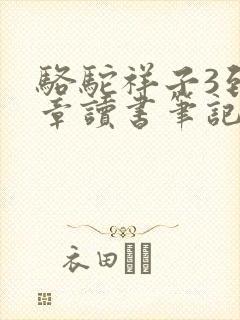 駱駝祥子3到
章讀書筆記
衣田